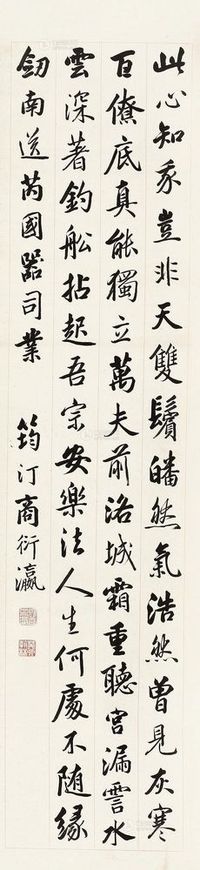 此心知我豈非天雙鬢皤然氣浩然曾見灰寒
百僚底真能獨立萬夫前洛城霜重聽宮漏霅水
雲深著釣船拈起吾宗安樂法人生何處不随緣
劒南送芮國器司業 筠汀商衍瀛